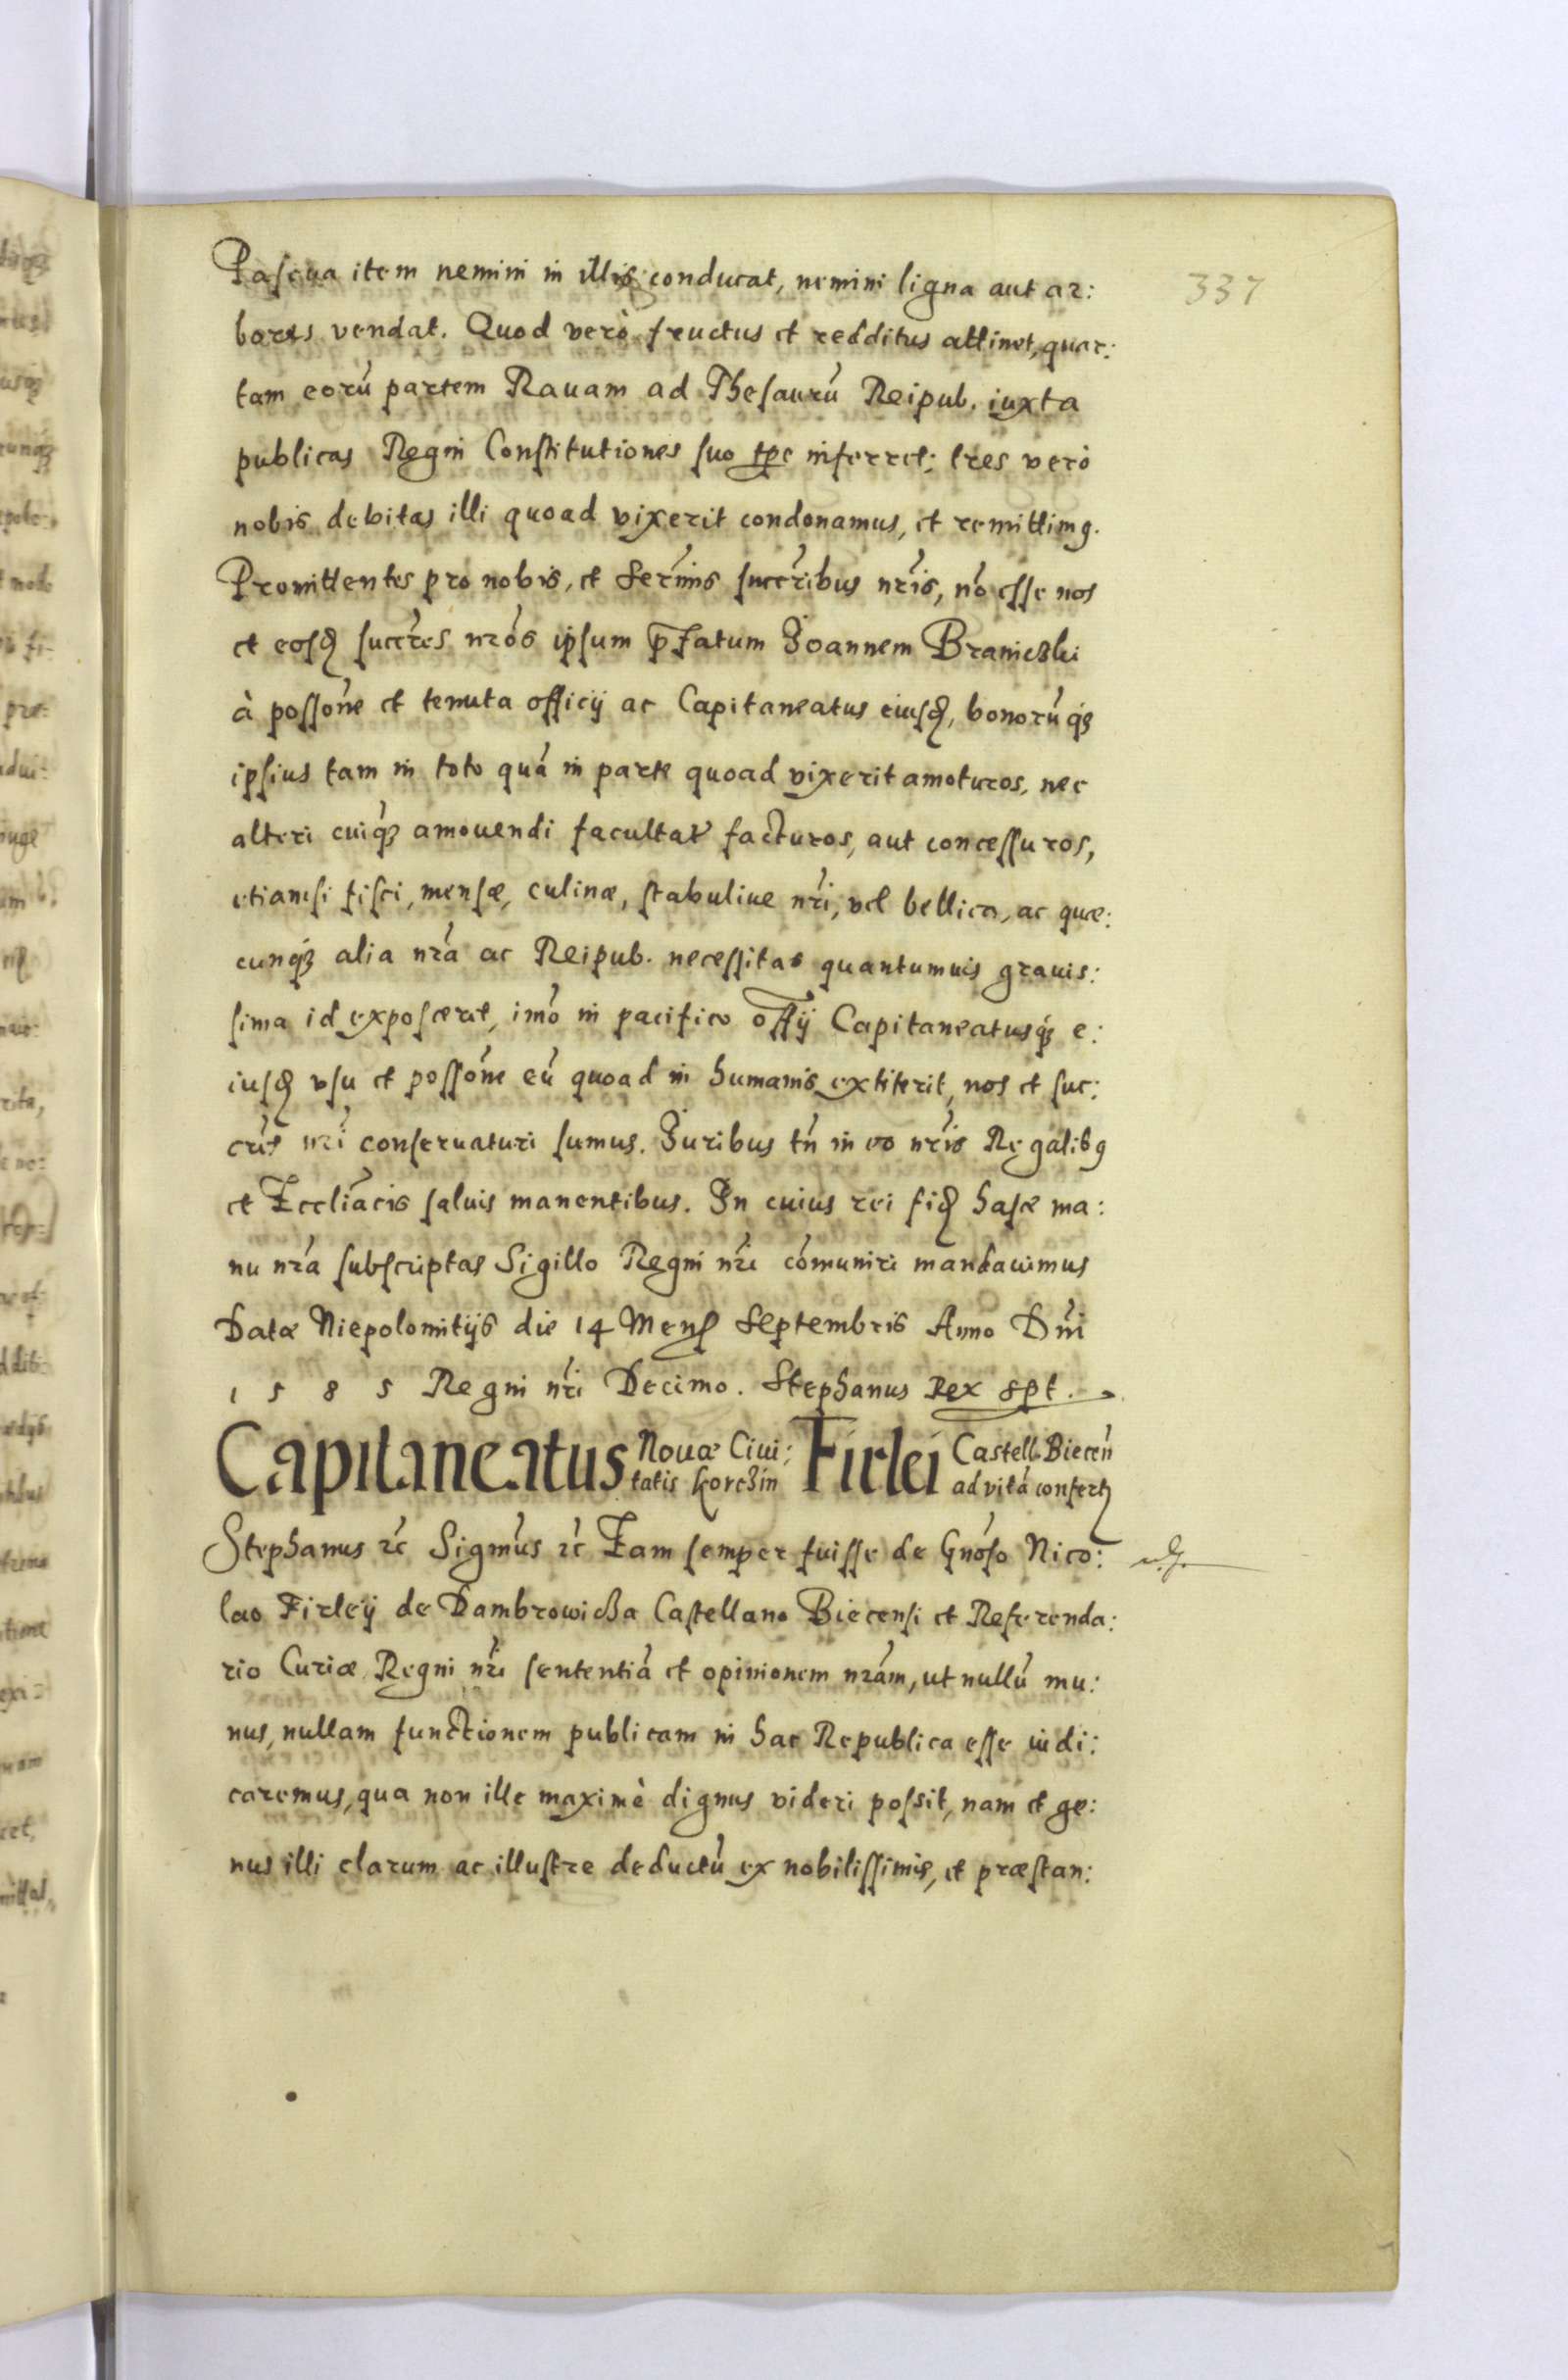 337
Pascua item nemini in illis conducat, nemini ligna aut ar:
bores vendat. Quod verò fructus et redditus attinet, quar:
tam eorú partem Ravam ad Thesaurú Reipub. iuxta
publicas Regni Constitutiones suo tpe inferret: tres verò
nobis debitas illi quoad vixerit condonamus, et remittimꝯ.
Promittentes pro nobis, et Sermis succribus nris, nó esse nos
et eosdꝫ succres nros ipsum pfatum Joannem Braniczki
à possone et tenuta officij ac Capitaneatus eiusdꝫ, bonorúqꝫ
ipsius tam in toto quá in parte quoad vixerit amoturos, nec
alteri cuiqꝫ amouendi facultaté facturos, aut concessuros,
etiamsi fisci, mensæ, culinæ, stabuliue nri, vel bellica, ac quæ:
cunqꝫ alia nra ac Reipub. necessitas quantumuis grauis:
sima id exposceret, imó in pacifico offij Capitaneatusqꝫ e:
iusdꝫ vsu et possone eú quoad in humanis extiterit, nos et suc:
cres nri conseruaturi sumus. Juribus tn in eo nris Regalibꝯ
et Eccliacis saluis manentibus. In cuius rei fidꝫ hasce ma:
nu nra subscriptas Sigillo Regni nri cómuniri mandauimus
Datæ Niepolomitijs die 14 Mens Septembris Anno Dni
1585 Regni nri Decimo. Stephanus Rex spt.
Capitaneatus Nouæ Ciui: tatis Korczin Firlei Castell. Biecen ad vitá confertꝫ
Stephanus ꝛc Sigmus ꝛc Eam semper fuisse de Gnoso Nico:
lao Firleij de Dambrowicza Castellano Biecensi et Referenda:
rio Curiæ Regni nri sententiá et opinionem nram, ut nullú mu:
nus, nullam functionem publicam in hac Republica esse iudi:
caremus, qua non ille maximè dignus videri possit, nam et ge:
nus illi clarum ac illustre deductú ex nobilissimis, et præstan: